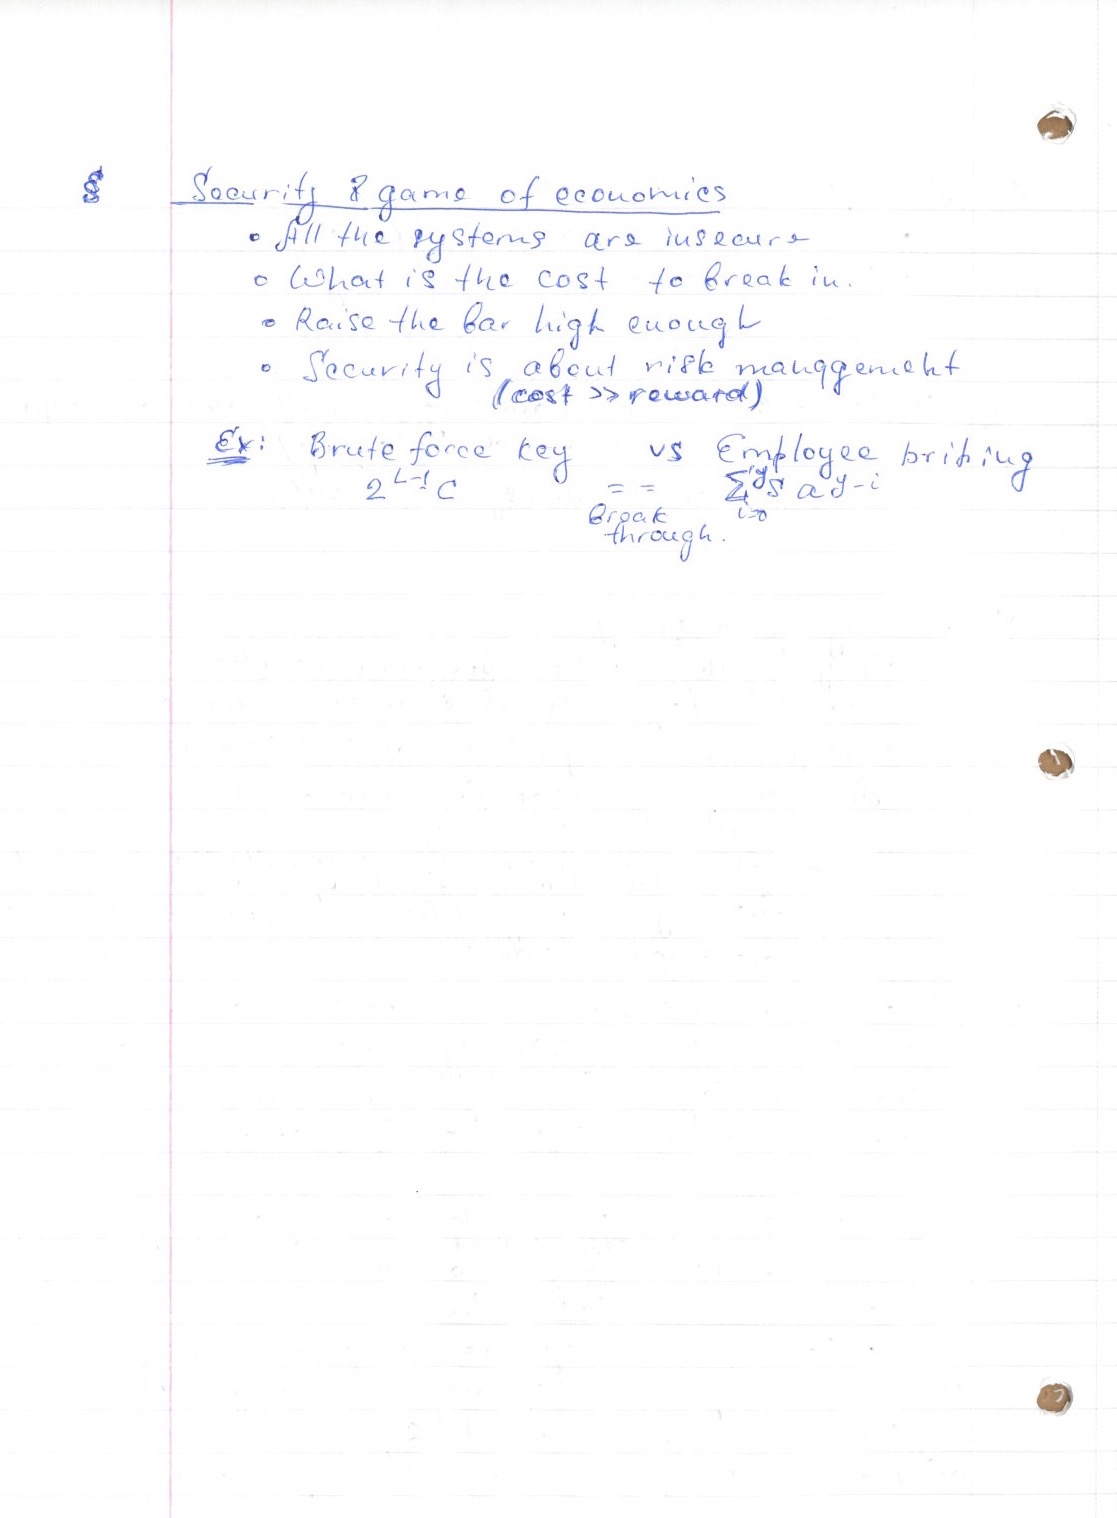 § Security & game of economics
• All the systems are insecure
• What is the cost to break in.
• Raise the bar high enough
• Security is about risk management
(cost >> reward)
Ex: Brute force key vs Employee bribing
2^{L-1}C == ∑_{i=0}^{y} S a^{y-i}
Break
through.